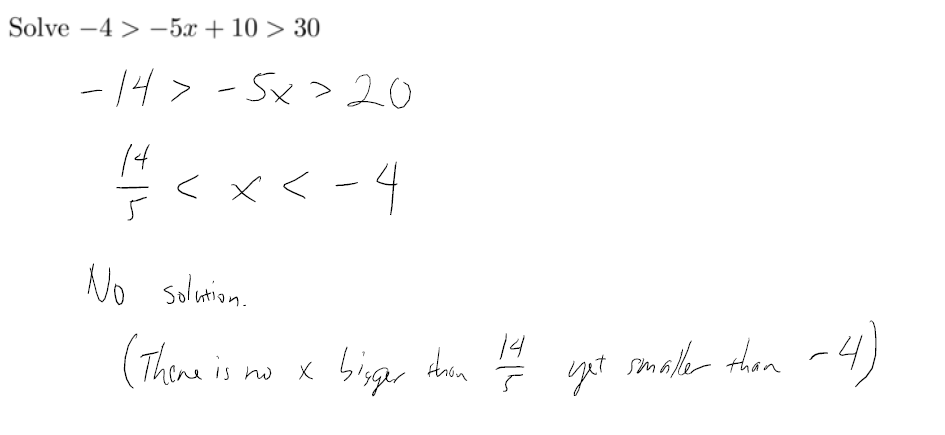 Solve −4 > −5x + 10 > 30
-14 > -5x > 20
14/5 < x < -4
No solution.
(There is no x bigger than 14/5 yet smaller than -4)